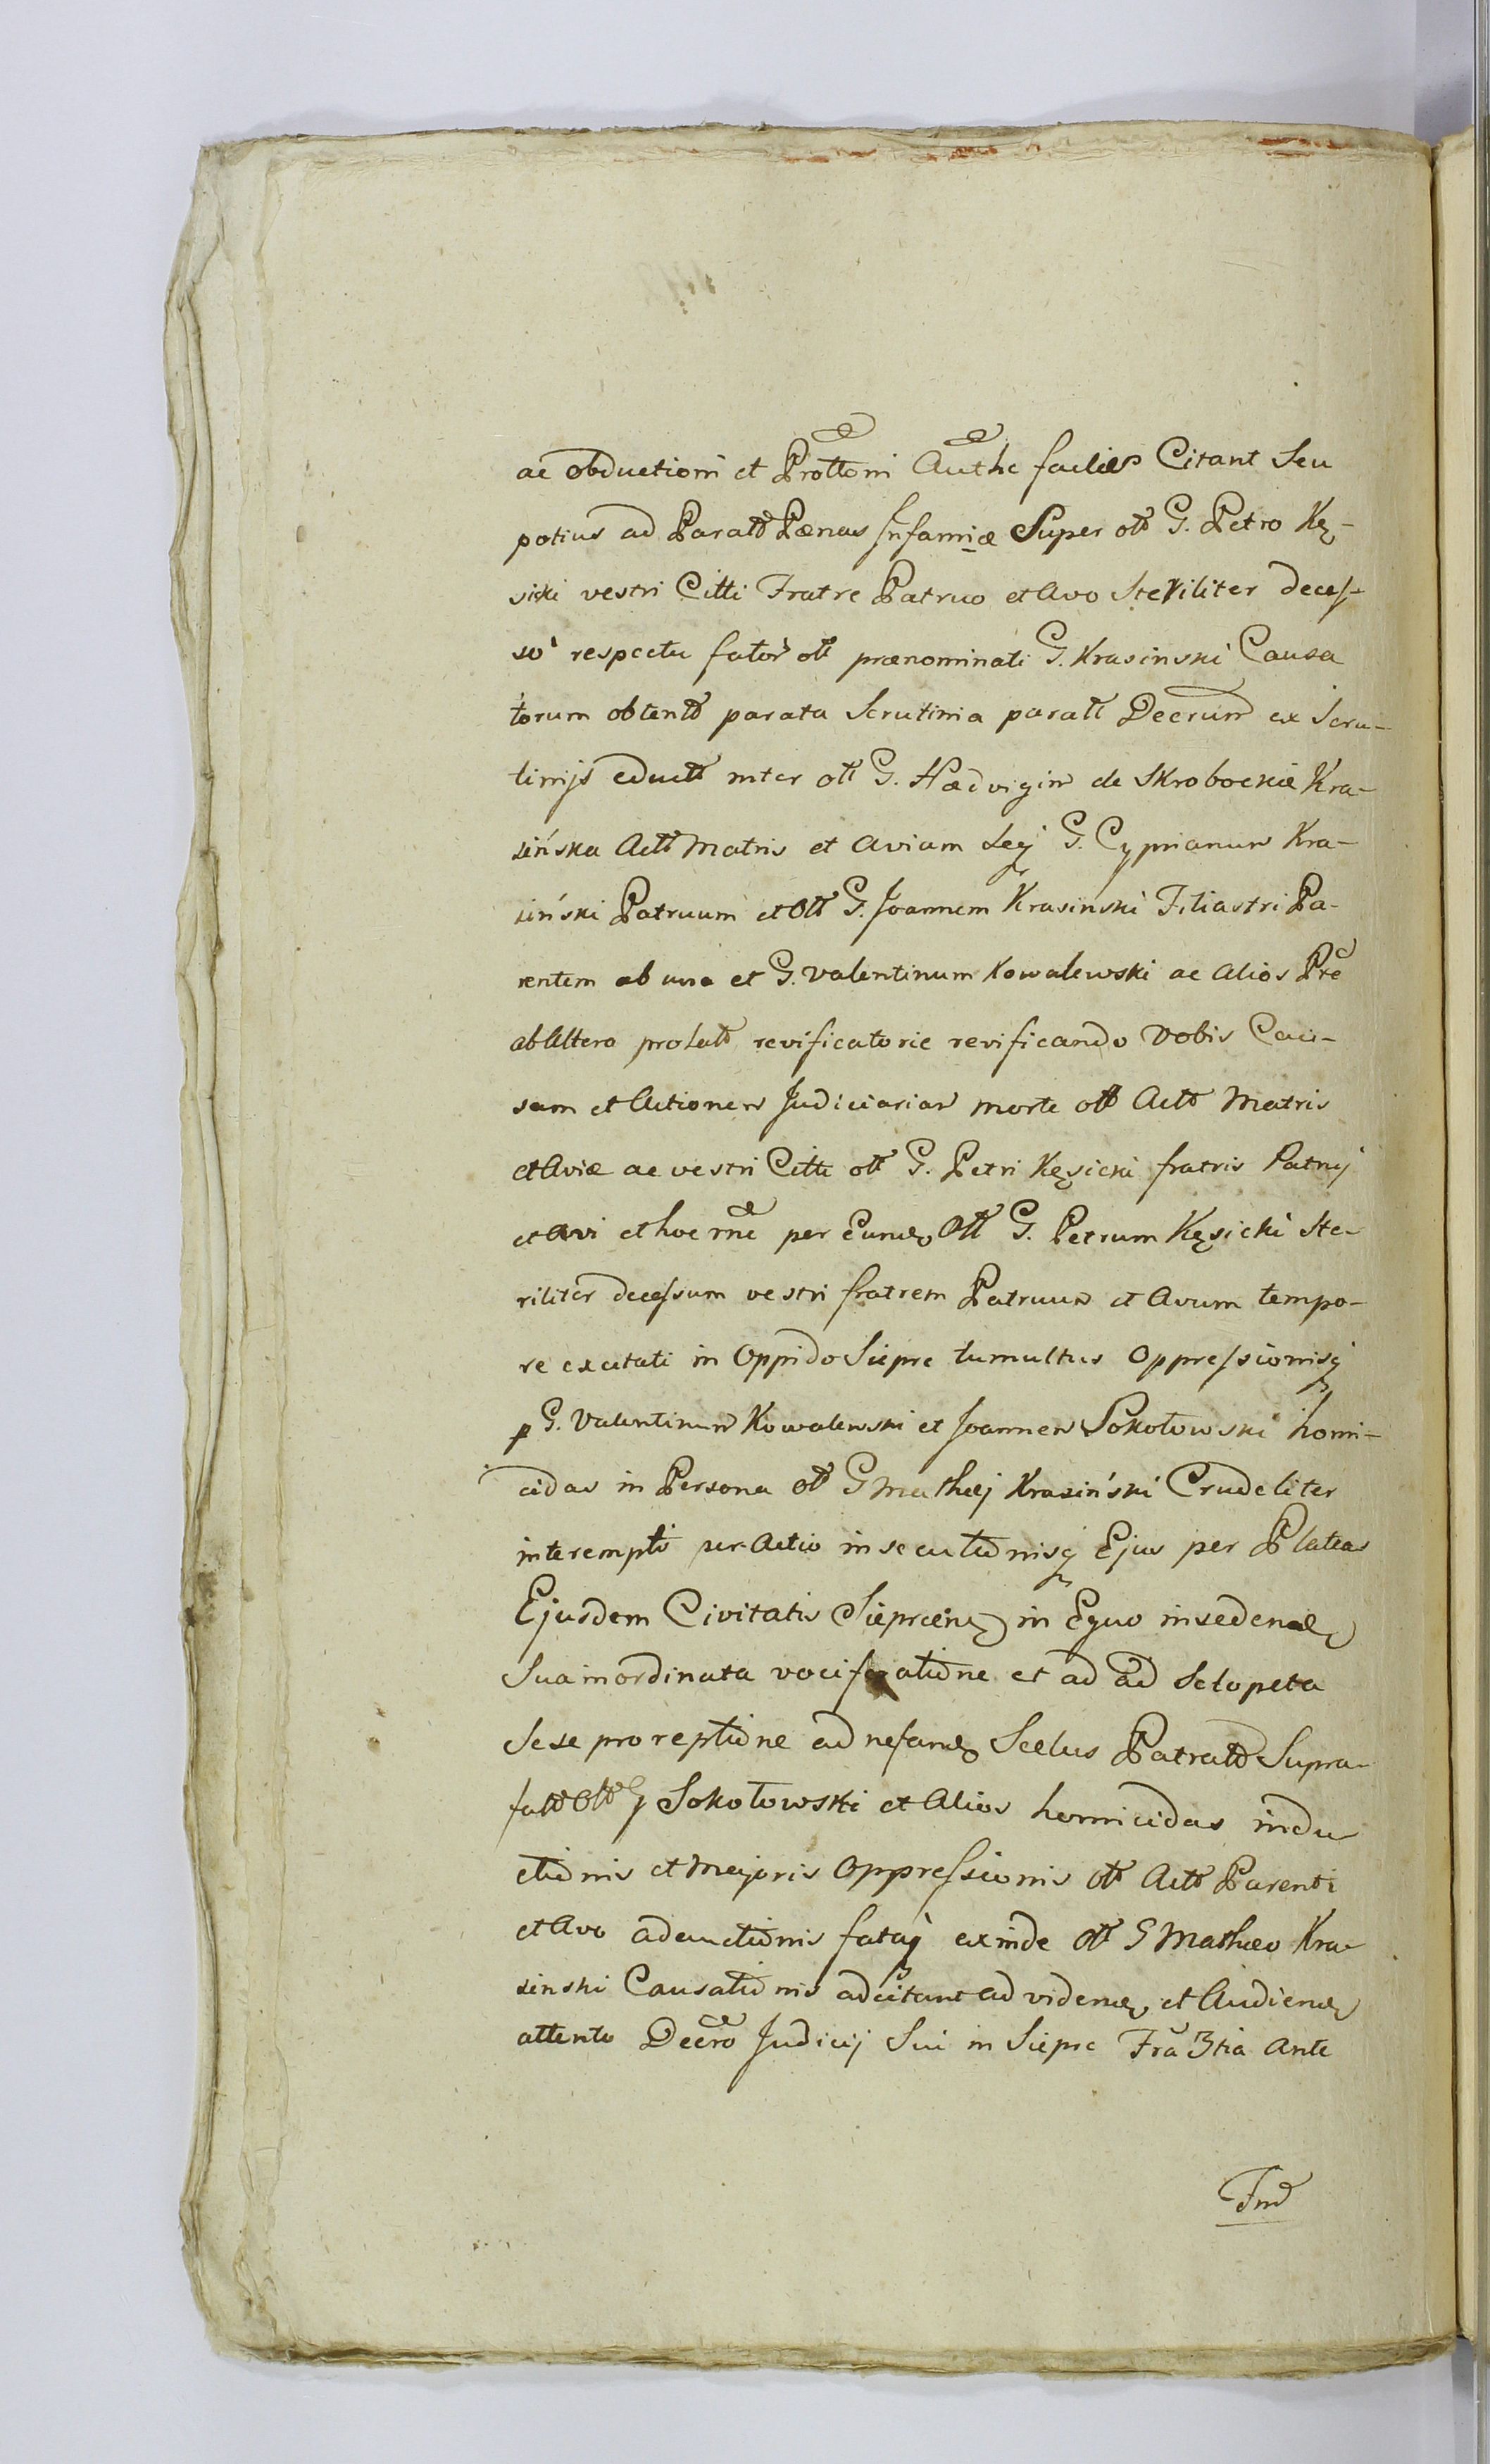 ac obductioni et Prottoni Authc facien Citant Seu
potius ad Paratt Pænas Infamiæ Super ott G. Petro Kę-
sicki vestri Citti Fratre Patruo et Avo Steriliter deces-
so respectu fator ott prænominati G. Krasinski Causa
torum obtentt parata Scrutinia paratt Decrum ex Scru-
tinijs eductt inter ott G. Hædvigim de Skrobockie Kra-
sińska Actt Matris et Aviam Seq G. Cyprianum Kra-
siński Patruum et Ott G. Joannem Krasinski Filiastri Pa-
rentem ab una et G. Valentinum Kowalewski ac Alios Pre
ab Altera prolatt revificatorie revificando Vobis Cau-
sam et Actionem Judiciariam morte ott Actt Matris
et Aviæ ac vestri Citti ott G. Petri Kęsicki fratris Patruj
et Avi et hoc rne per Eund Ott G. Petrum Kęsicki Ste-
riliter decessum vestri fratrem Patruum et Avum tempo-
re excitati in Oppido Siepre tumultus Oppressionisq
p G. Valentinum Kowalewski et Joannem Sokołowski homi-
cidas in Persona ott G Mathej Krasiński Crudeliter
interempti per Actio insecutionisq Ejus per Plateas
Ejusdem Civitatis Sieprcen in Equo insedend
Sua inordinata vociferatione et ad ad Sclopeta
Sese proreptione ad nefand Scelus Patratt Supra-
fatt Ott G Sokołowski et Alios homicidas indu
ctionis et Majoris Oppressionis Ott Actt Parenti
et Avo adauctionis fatq exinde Ott G Mathæo Kra-
sinski Causationis adcitant ad videnд et Audiend
attento Decro Judicij Sui in Siepre Fra 3tia Ante
Fmd